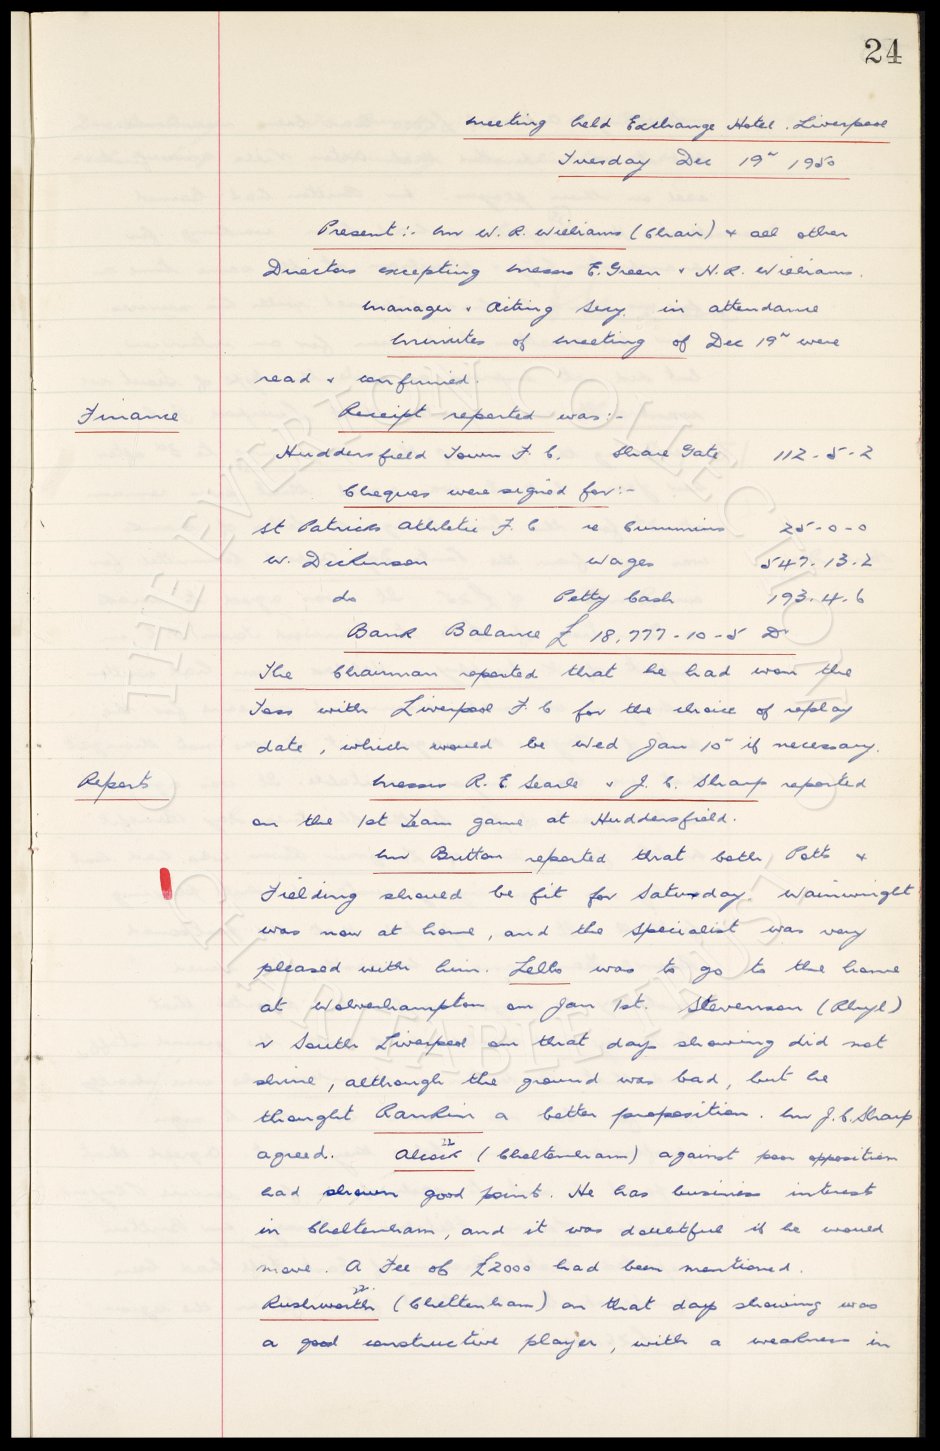 24
Meeting held Exchange Hotel. Liverpool
Tuesday Dec 19th 1950
Present:- Mr W. R. Williams (Chair) & all other
Directors excepting Messrs E. Green & N. R. Williams.
Manager & Acting Secy. in attendance
Minutes of meeting of Dec 19th were
read & confirmed.
Finance Receipt reported was:-
Huddersfield Town F. C. Share Gate 112-5-2
Cheques were signed for:-
St Patricks Athletic F. C re Cummins 25-0-0
W. Dickinson Wages 547.13.2
do Petty Cash 193.4.6
Bank Balance £ 18,777-10-5 Dr
The Chairman reported that he had won the
Toss with Liverpool F. C for the choice of replay
date, which would be Wed Jan 10th if necessary.
Reports Messrs R. E Searle & J. C. Sharp reported
on the 1st Team game at Huddersfield.
Mr Britton reported that both Potts &
Fielding should be fit for Saturday. Wainwright
was now at home, and the specialist was very
pleased with him. Lello was to go to the home
at Wolverhampton on Jan 1st. Stevenson (Rhyl)
v South Liverpool on that days showing did not
shine, although the ground was bad, but he
thought Rankin a better proposition. Mr J. C. Sharp
agreed. Alcock (Cheltenham) against poor opposition
22
had shown good point. He has business interest
in Cheltenham, and it was doubtful if he would
move. A Fee of £2000 had been mentioned.
Rushworth (Cheltenham) on that days showing was
22
a good constructive player, with a weakness in
THE EVERTON COLLECTION
CHARITABLE TRUST